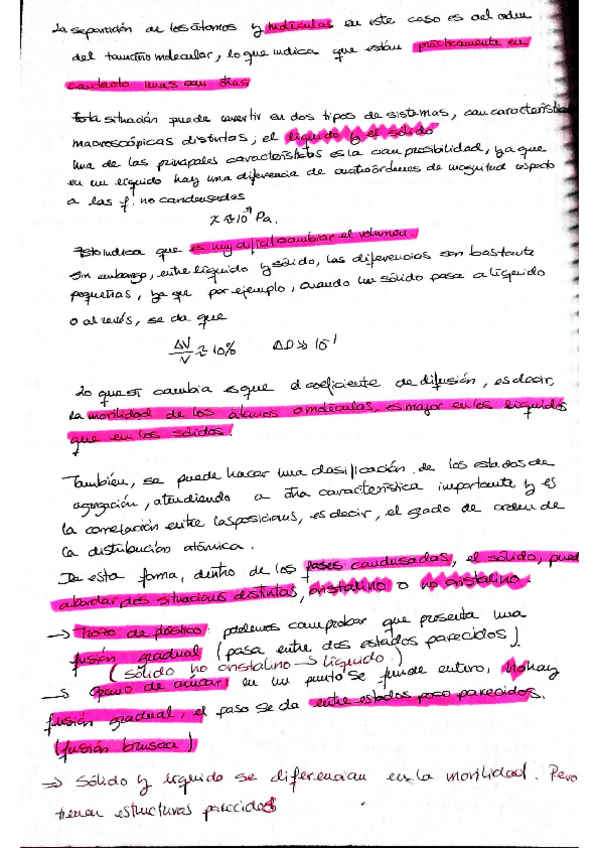 La separación de los átomos y moléculas en este caso es del orden
del tamaño molecular, lo que indica que están prácticamente en
contacto unas con otras
Esta situación puede convertir en dos tipos de sistemas, con característicos
macroscópicas distintas; el líquido y el sólido
Una de las principales características es la compresibilidad, ya que
en un líquido hay una diferencia de cuatro órdenes de magnitud respecto
a las f. no condensadas
Pa.
Esto indica que es muy difícil cambiar el volumen.
Sin embargo, entre líquido y sólido, las diferencias son bastante
pequeñas, ya que por ejemplo, cuando un sólido pasa a líquido
o al revés, se da que
ΔV/V ≈ 10% ΔD >> 10⁻¹
Lo que sí cambia es que el coeficiente de difusión, es decir,
la movilidad de los átomos o moléculas, es mayor en los líquidos
que en los sólidos.
También, se puede hacer una clasificación de los estados de
agregación, atendiendo a otra característica importante y es
la correlación entre las posiciones, es decir, el grado de orden de
la distribución atómica.
De esta forma, dentro de los fases condensadas, el sólido, pued
abordar dos situaciones distintas, cristalino o no cristalino.
→ Trozo de plástico: podemos comprobar que presenta una
fusión gradual (pasa entre dos estados parecidos).
(sólido no cristalino → líquido)
→ grano de azúcar: en un punto se funde entero, no hay
fusión gradual, el paso se da entre estados poco parecidos.
(fusión brusca)
⇒ Sólido y líquido se diferencian en la movilidad. Pero
tienen estructuras parecidas